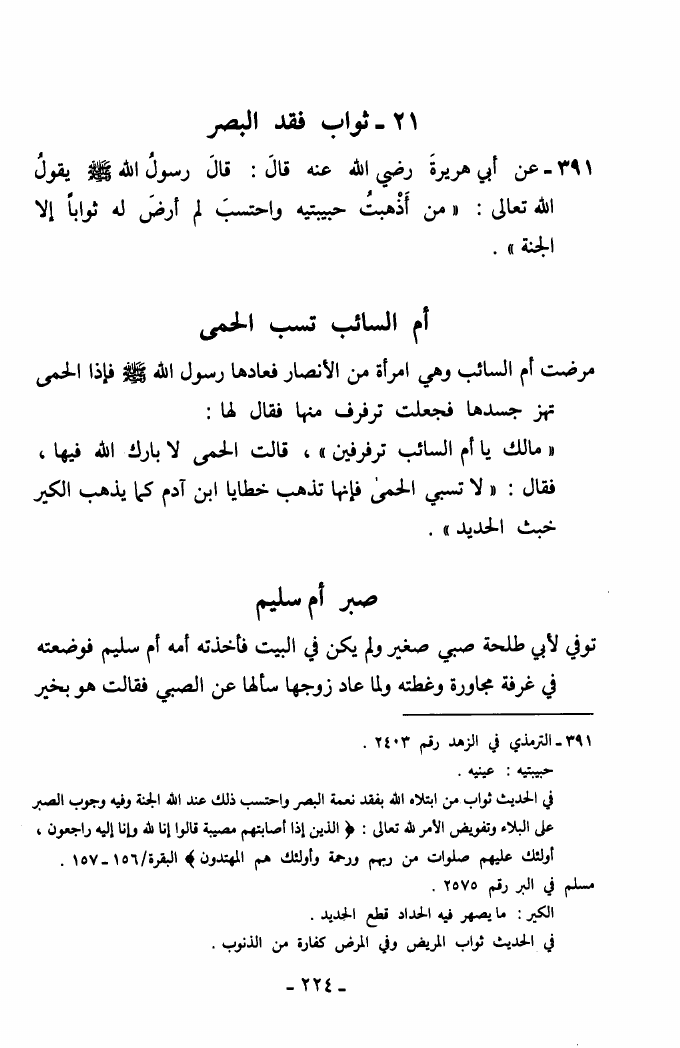 ٢١ ـ ثواب فقد البصر
٣٩١ ـ عن أبي هريرةَ رضي الله عنه قالَ : قالَ رسولُ الله ﷺ يقولُ
الله تعالى : « من أَذْهبتُ حبيبتيه واحتسبَ لم أرضَ له ثواباً إلا
الجنة » .
أم السائب تسب الحمى
مرضت أم السائب وهي امرأة من الأنصار فعادها رسول الله ﷺ فإذا الحمى
تهز جسدها فجعلت ترفرف منها فقال لها :
« مالك يا أم السائب ترفرفين » ، قالت الحمى لا بارك الله فيها ،
فقال : « لا تسبي الحمىٰ فإنها تذهب خطايا ابن آدم كما يذهب الكير
خبث الحديد » .
صبر أم سليم
توفي لأبي طلحة صبي صغير ولم يكن في البيت فأخذته أمه أم سليم فوضعته
في غرفة مجاورة وغطته ولما عاد زوجها سألها عن الصبي فقالت هو بخير
٣٩١ ـ الترمذي في الزهد رقم ٢٤٠٣ .
حبيبتيه : عينيه .
في الحديث ثواب من ابتلاه الله بفقد نعمة البصر واحتسب ذلك عند الله الجنة وفيه وجوب الصبر
على البلاء وتفويض الأمر لله تعالى : ﴿ الذين إذا أصابتهم مصيبة قالوا إنا لله وإنا إليه راجعون ،
أولئك عليهم صلوات من ربهم ورحمة وأولئك هم المهتدون ﴾ البقرة/١٥٦ ـ ١٥٧ .
مسلم في البر رقم ٢٥٧٥ .
الكير : ما يصهر فيه الحداد قطع الحديد .
في الحديث ثواب المريض وفي المرض كفارة من الذنوب .
ـ ٢٢٤ ـ